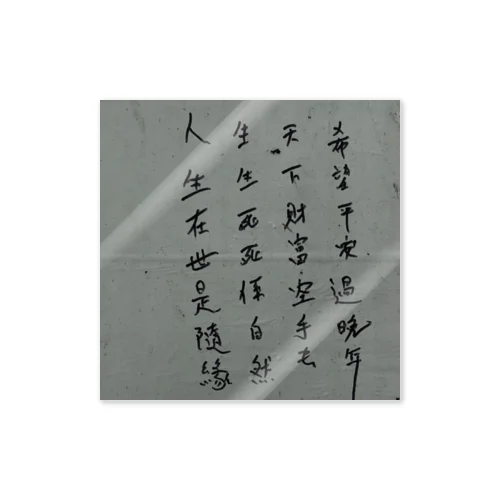 人生在世是隨緣
生生死死係自然
天下財富空手去
希望平安過晚年